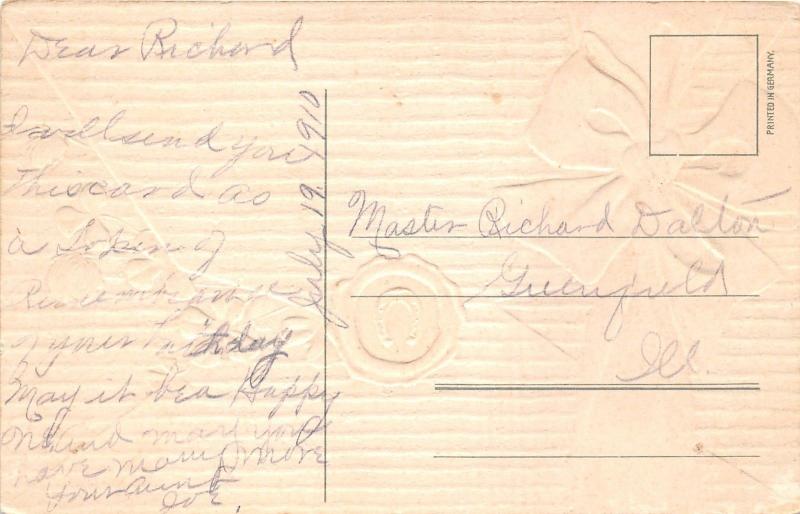 Dear Richard
I will send you
This card as
a Token of
Remembrance
of your Birthday
May it be a Happy
one and may you
have many more
Your aunt
July 19, 1910
PRINTED IN GERMANY.
Master Richard Dalton
Greenfield
Ill.